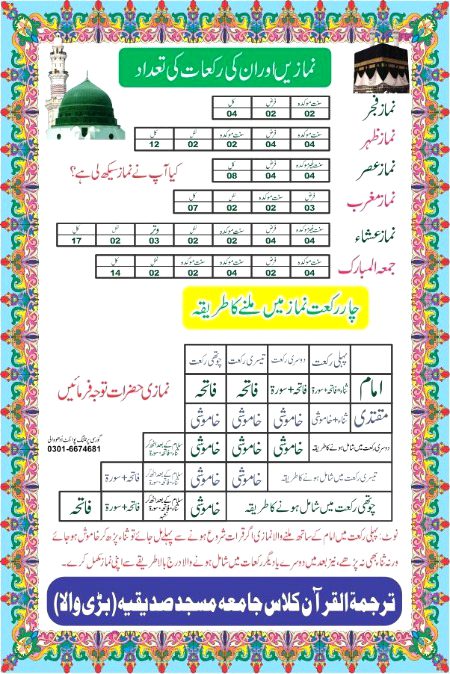 نمازیں اور ان کی رکعات کی تعداد
نماز فجر
سنت موکدہ فرض کل
02 02 04
نماز ظہر
سنت موکدہ فرض سنت موکدہ نفل کل
04 04 02 02 12
نماز عصر
سنت غیر موکدہ فرض کل
04 04 08
کیا آپ نے نماز سیکھ لی ہے؟
نماز مغرب
فرض سنت موکدہ نفل کل
03 02 02 07
نماز عشاء
سنت غیر موکدہ فرض سنت موکدہ نفل وتر نفل کل
04 04 02 02 03 02 17
جمعۃ المبارک
سنت موکدہ فرض سنت موکدہ سنت موکدہ نفل کل
04 02 04 02 02 14
چار رکعت نماز میں ملنے کا طریقہ
پہلی رکعت دوسری رکعت تیسری رکعت چوتھی رکعت
امام ثناء+فاتحہ+سورۃ فاتحہ+سورۃ فاتحہ فاتحہ
نمازی حضرات توجہ فرمائیں
مقتدی ثناء+خاموشی خاموشی خاموشی خاموشی
دوسری رکعت میں شامل ہونے کا طریقہ خاموشی خاموشی خاموشی
0301-6674681
تیسری رکعت میں شامل ہونے کا طریقہ خاموشی خاموشی فاتحہ+سورۃ
چوتھی رکعت میں شامل ہونے کا طریقہ خاموشی فاتحہ+سورۃ فاتحہ
نوٹ: پہلی رکعت میں امام کے ساتھ ملنے والا نمازی اگر قرات شروع ہونے سے پہلے مل جائے تو ثناء پڑھ کر خاموش ہو جائے
ورنہ ثناء بھی نہ پڑھے، نیز بعد میں دوسرے یا دیگر رکعات میں شامل ہونے والا درج بالا طریقے سے اپنی نماز مکمل کرے۔
ترجمۃ القرآن کلاس جامعہ مسجد صدیقیہ (بڑی والا)